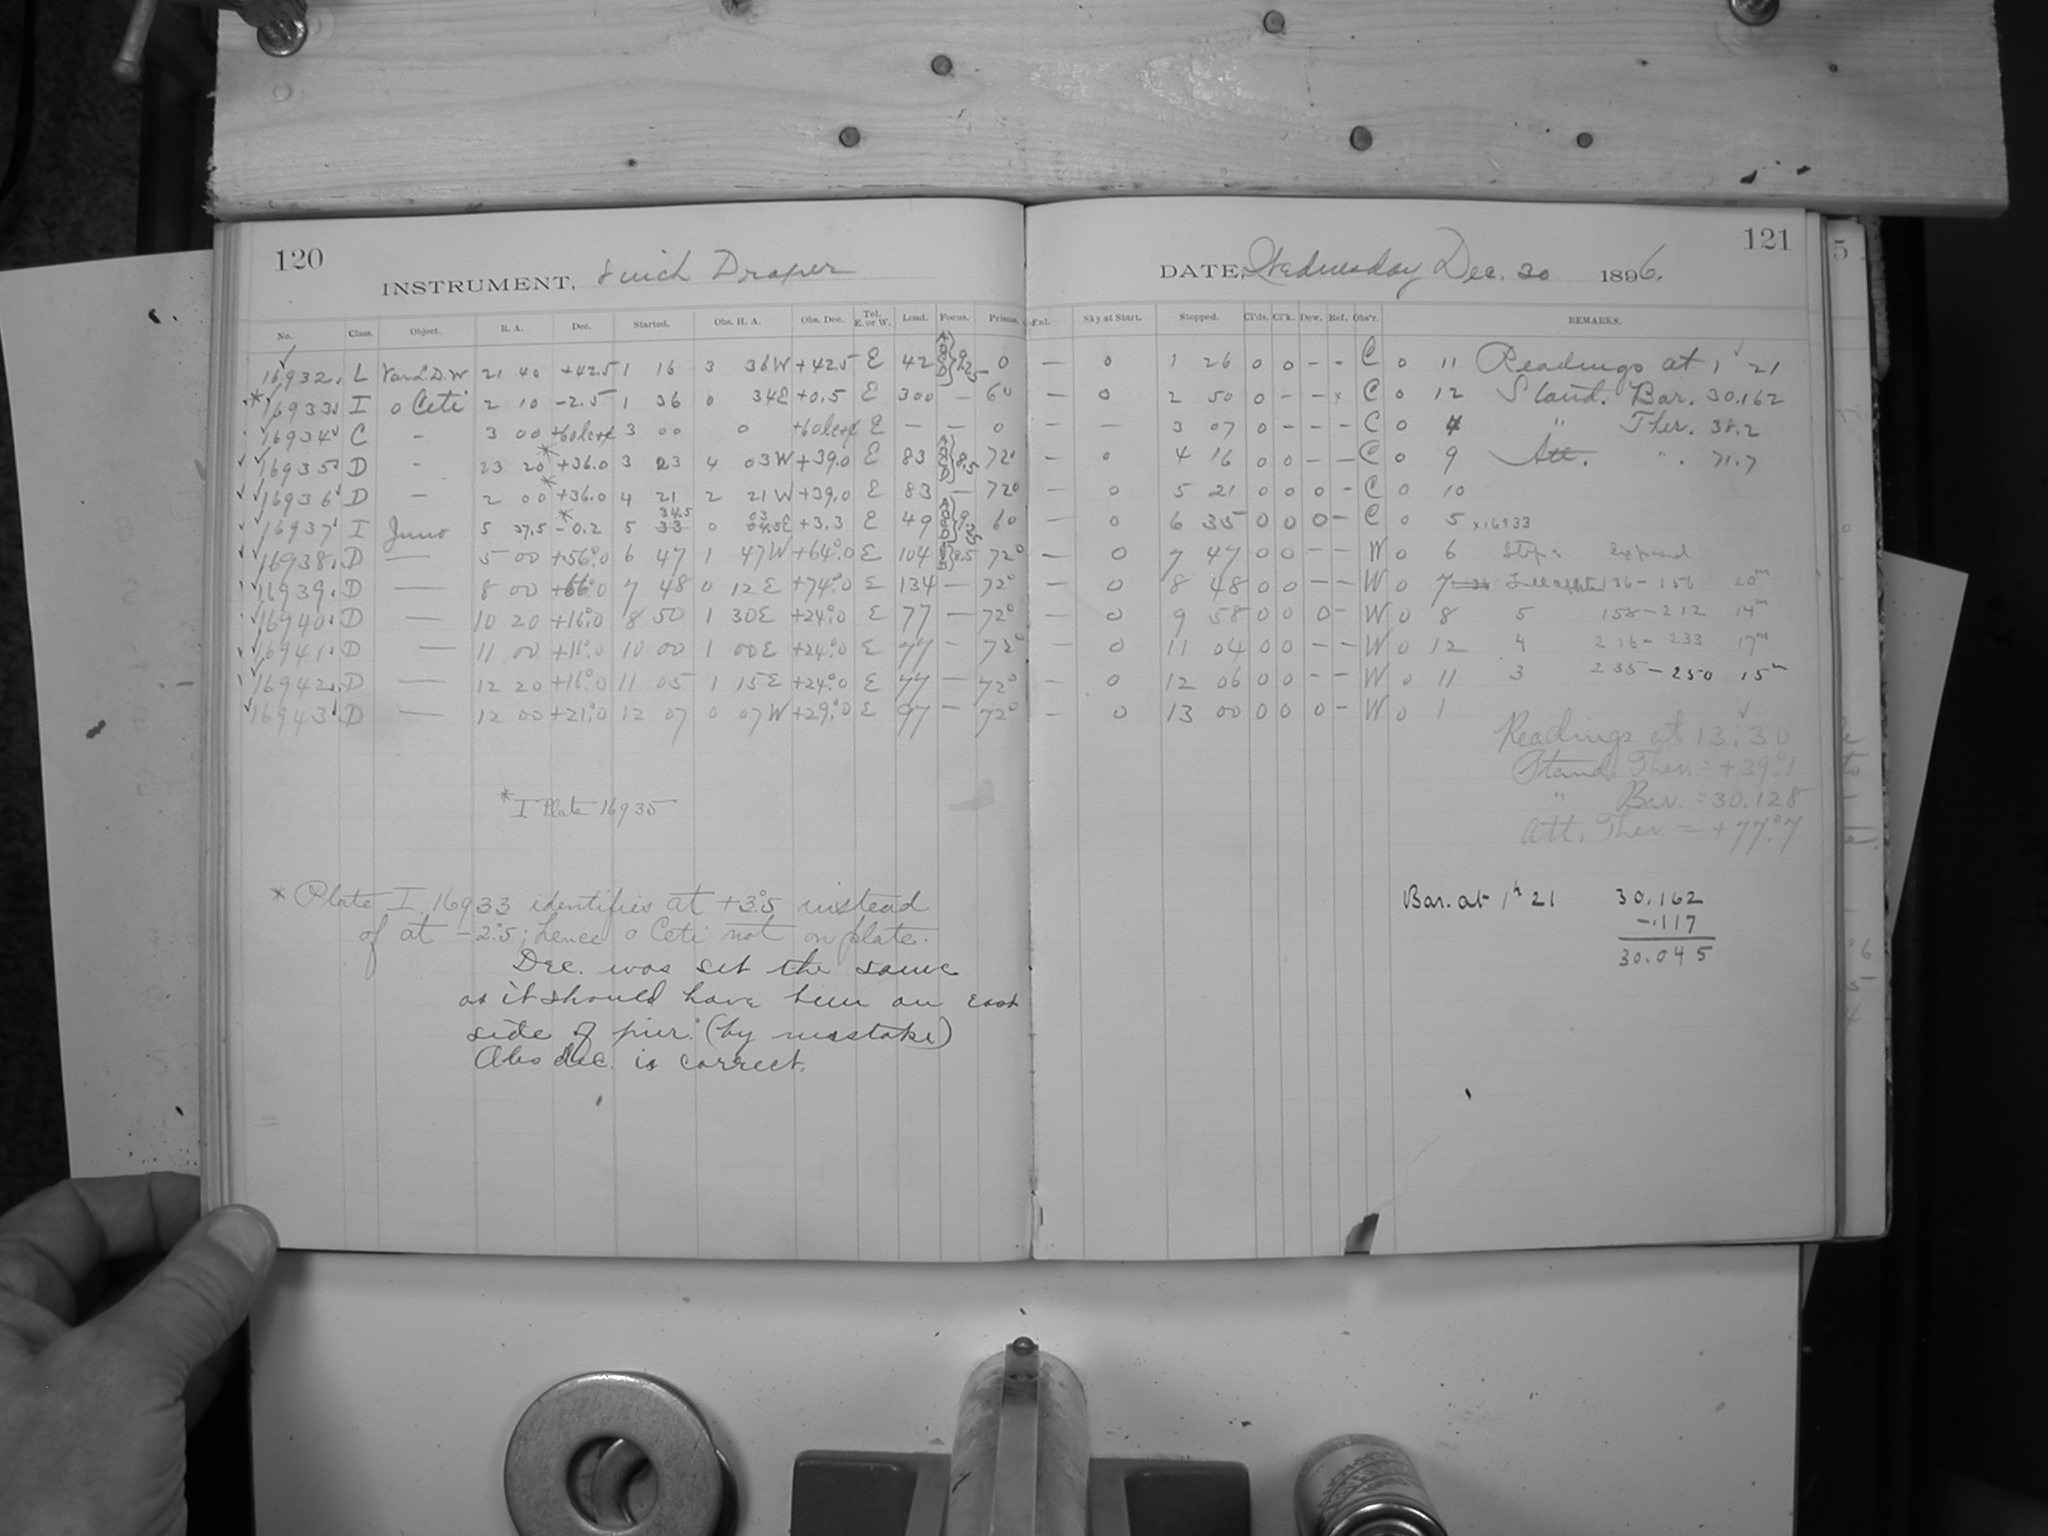 120
INSTRUMENT, 8 inch Draper
No. Class. Object. R. A. Dec. Started. Obs. H. A. Obs. Dec. Tel. E. or W. Load. Focus. Prisms.
16932 L Var L.D.W 21 40 +42.5 1 16 3 36W +42.5 E 42 0
*16933 I o Ceti 2 10 -2.5 1 36 0 34E +0.5 E 300 — 60
16934 C - 3 00 +Pole 3 00 0 E — — 0
16935 D - 23 20* +36.0 3 23 4 03W +39.0 E 83 8.5 72°
16936 D — 2 00* +36.0 4 21 2 21W +39.0 E 83 — 72°
16937 I Juno 5 27.5 *-0.2 5 33 34.5 0 04.5E 03 +3.3 E 49 60
16938 D — 5 00 +56°.0 6 47 1 47W +64°.0 E 104 8.5 72°
16939 D — 8 00 +66°.0 7 48 0 12E +74°.0 E 134 — 72°
16940 D — 10 20 +16°.0 8 50 1 30E +24°.0 E 77 — 72°
16941 D — 11 00 +16°.0 10 00 1 00E +24°.0 E 77 — 72°
16942 D — 12 20 +16°.0 11 05 1 15E +24°.0 E 77 — 72°
16943 D — 12 00 +21°.0 12 07 0 07W +29°.0 E 97 — 72°
* I Plate 16935
* Plate I 16933 identifies at +3°.5 instead
of at -2°.5; hence o Ceti not on plate.
Dec. was set the same
as it should have been on east
side of pier. (by mistake)
Obs dec. is correct.
121
DATE, Wednesday Dec. 30 1896.
Enl. Sky at Start. Stopped. Cl'ds. Cl'k. Dew. Ref. Obs'r. REMARKS.
— 0 1 26 0 0 - - C 0 11 Readings at 1 21
— 0 2 50 0 - - C 0 12 Stand. Bar. 30.162
— — 3 07 0 - - - C 0 4 " Ther. 38.2
— 0 4 16 0 0 - - C 0 9 Att. " 71.7
— 0 5 21 0 0 0 - C 0 10
— 0 6 35 0 0 0 - C 0 5 x16933
— 0 7 47 0 0 - - W 0 6 Stop: Exposed
— 0 8 48 0 0 - - W 0 7 136-156 20m
— 0 9 58 0 0 0 - W 0 8 5 158-212 14m
— 0 11 04 0 0 - - W 0 12 4 216-233 17m
— 0 12 06 0 0 - - W 0 11 3 235-250 15m
— 0 13 00 0 0 0 - W 0 1
Readings at 13:30
Stand. Ther. = +39°.1
" Bar. = 30.128
Att. Ther. = +77°.7
Bar. at 1h 21 30.162
-.117
30.045
5